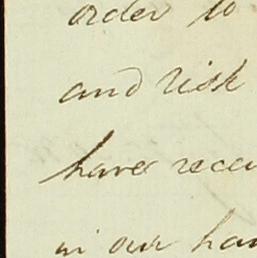 order to
and risk
have rece
in our han